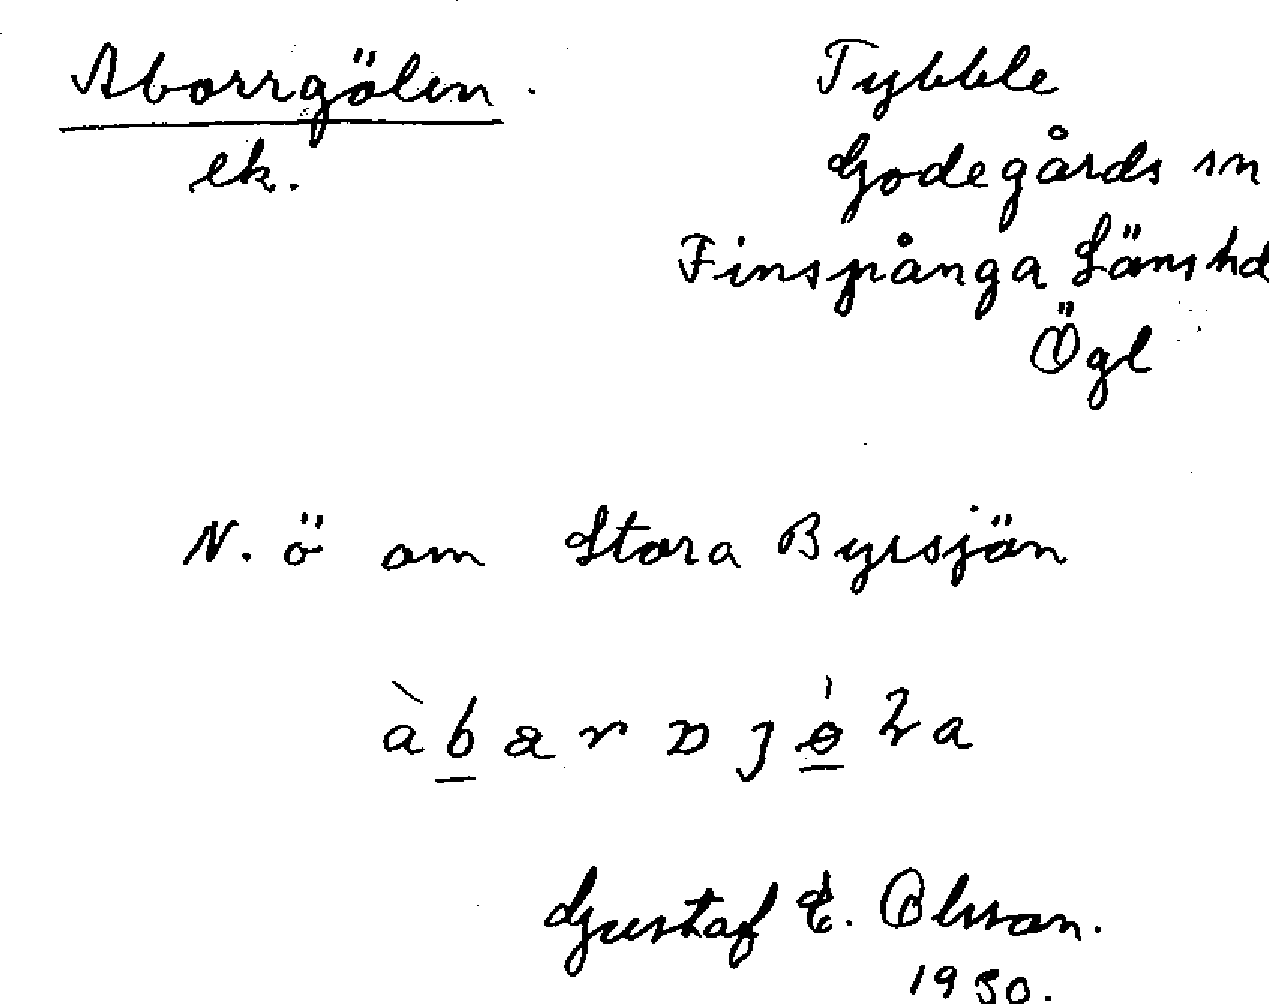 Aborrgölen.
ek.
Tybble
Godegårds sn
Finspånga Länshd
Ögl
N. ö om Stora Byrsjön
Gustaf E. Olsson.
1930.